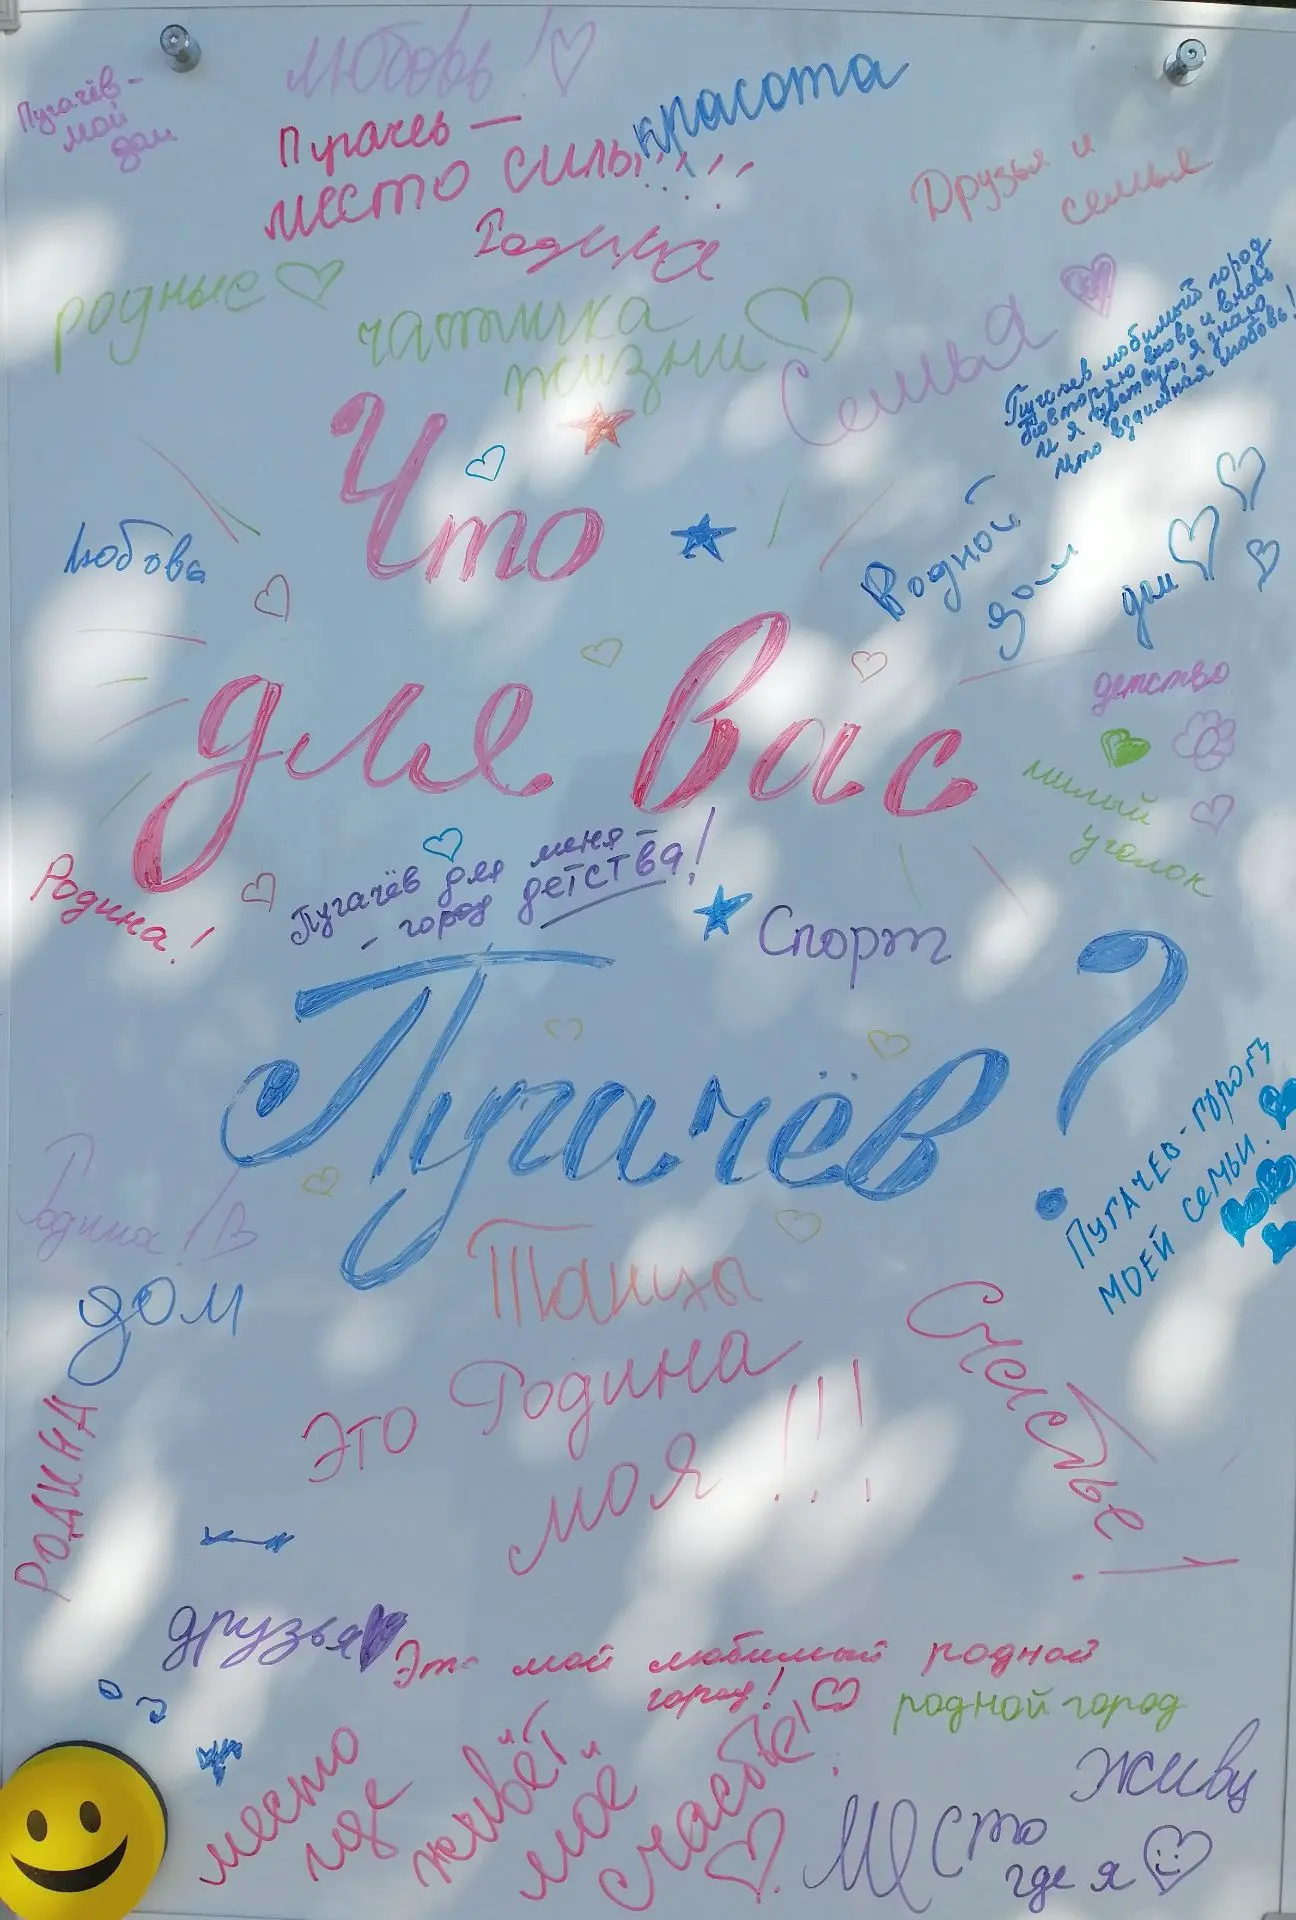 Любовь!
Пугачёв -
мой
дом
Пугачев —
место силы!!!!
красота
Друзья и
семья
Родина
родные
частичка
жизни
Семья
Пугачев любимый город
Повторяю вновь и вновь
И я чувствую, я знаю,
Что взаимная любовь!
Что
Любовь
Родной
дом
дом
для вас
детство
милый
уголок
Родина!
Пугачёв для меня -
- город детства!
Спорт
Пугачёв?
ПУГАЧЕВ - ГОРОД
МОЕЙ СЕМЬИ.
Родина
дом
Танцы
Это Родина
моя!!!
Счастье!
РОДИНА
друзья
Это мой любимый родной
город!
родной город
место
где
живёт
моё
счастье!
Место
где я
живу